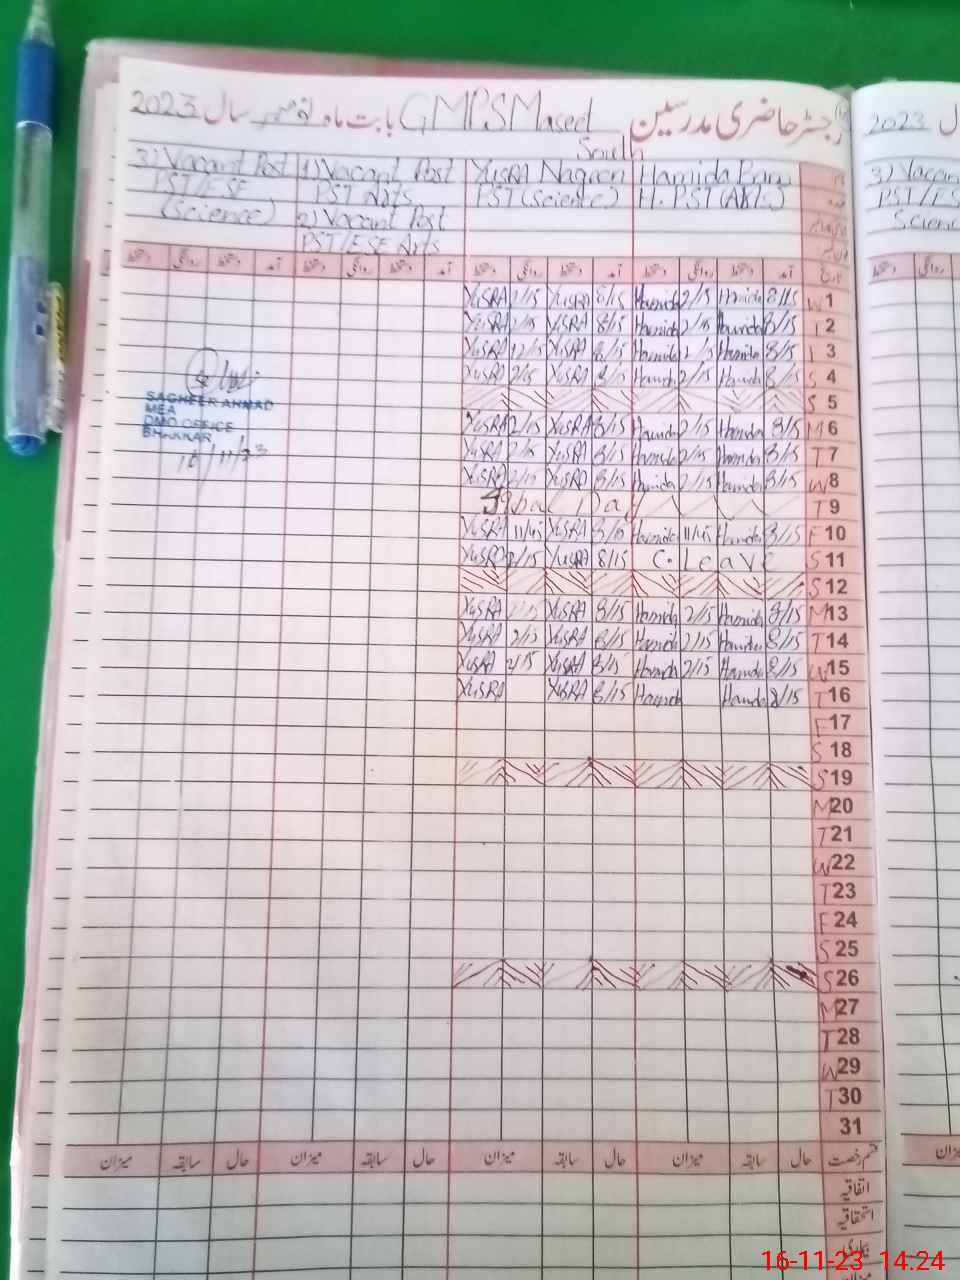 رجسٹر حاضری مدرسین GMPS Maseed South بابت ماہ نومبر سال 2023
Hamida Banu
H. PST (Arts)
YUSRA Nageen
PST (Science)
1) Vacant Post
PST Arts
2) Vacant Post
PST/ESE Arts
3) Vacant Post
PST/ESE
(Science)
آمد دستخط روانگی دستخط آمد دستخط روانگی دستخط آمد دستخط روانگی دستخط آمد دستخط روانگی دستخط
W 1 8/15 Hamida 2/15 Hamida 8/15 YUSRA 2/15 YUSRA
T 2 8/15 Hamida 2/15 Hamida 8/15 YUSRA 2/15 YUSRA
F 3 8/15 Hamida Hamida 8/15 YUSRA 12/15 YUSRA
S 4 8/15 Hamida 2/15 Hamida 8/15 YUSRA 2/15 YUSRA
S 5
M 6 8/15 Hamida 2/15 Hamida 8/15 YUSRA 2/15 YUSRA
T 7 8/15 Hamida 2/15 Hamida 8/15 YUSRA 2/15 YUSRA
W 8 8/15 Hamida 2/15 Hamida 8/15 YUSRA 2/15 YUSRA
T 9 Iqbal Day
F 10 8/15 Hamida 11/45 Hamida 8/15 YUSRA 11/45 YUSRA
S 11 C. Leave 8/15 YUSRA 2/15 YUSRA
S 12
M 13 8/15 Hamida 2/15 Hamida 8/15 YUSRA YUSRA
T 14 8/15 Hamida 2/15 Hamida 8/15 YUSRA 2/15 YUSRA
W 15 8/15 Hamida 2/15 Hamida 8/15 YUSRA 2/15 YUSRA
T 16 8/15 Hamida Hamida 8/15 YUSRA YUSRA
F 17
S 18
S 19
M 20
T 21
W 22
T 23
F 24
S 25
S 26
M 27
T 28
W 29
T 30
31
SAGHEER AHMAD
MEA
DMO OFFICE
BHAKKAR
16/11/23
قسم رخصت حال سابقہ میزان حال سابقہ میزان حال سابقہ میزان حال سابقہ میزان
اتفاقیہ
استحقاقیہ
بیماری
میزان
2023
3) Vacan
PST/ES
Scienc
دستخط روانگی
16-11-23 14.24